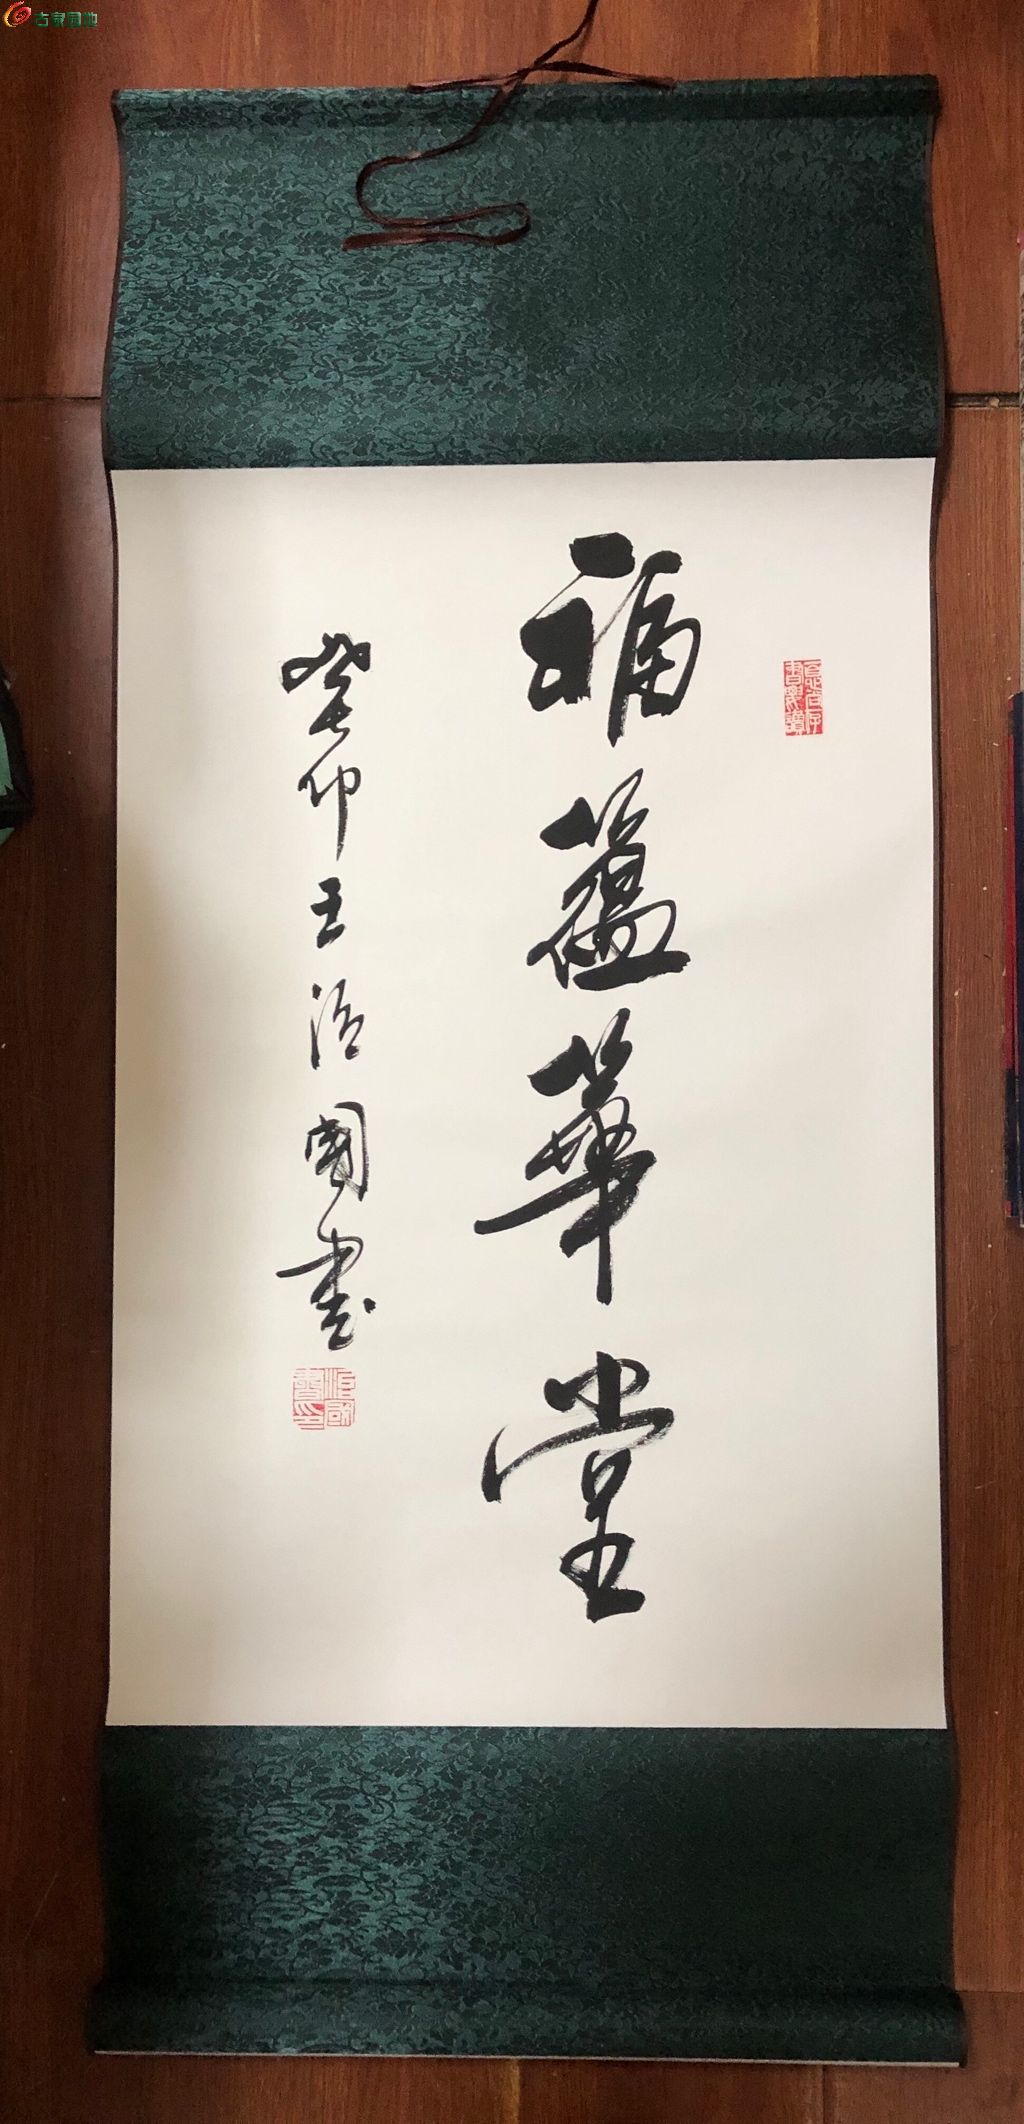 古泉园地
福蕴華堂
癸卯王治國書